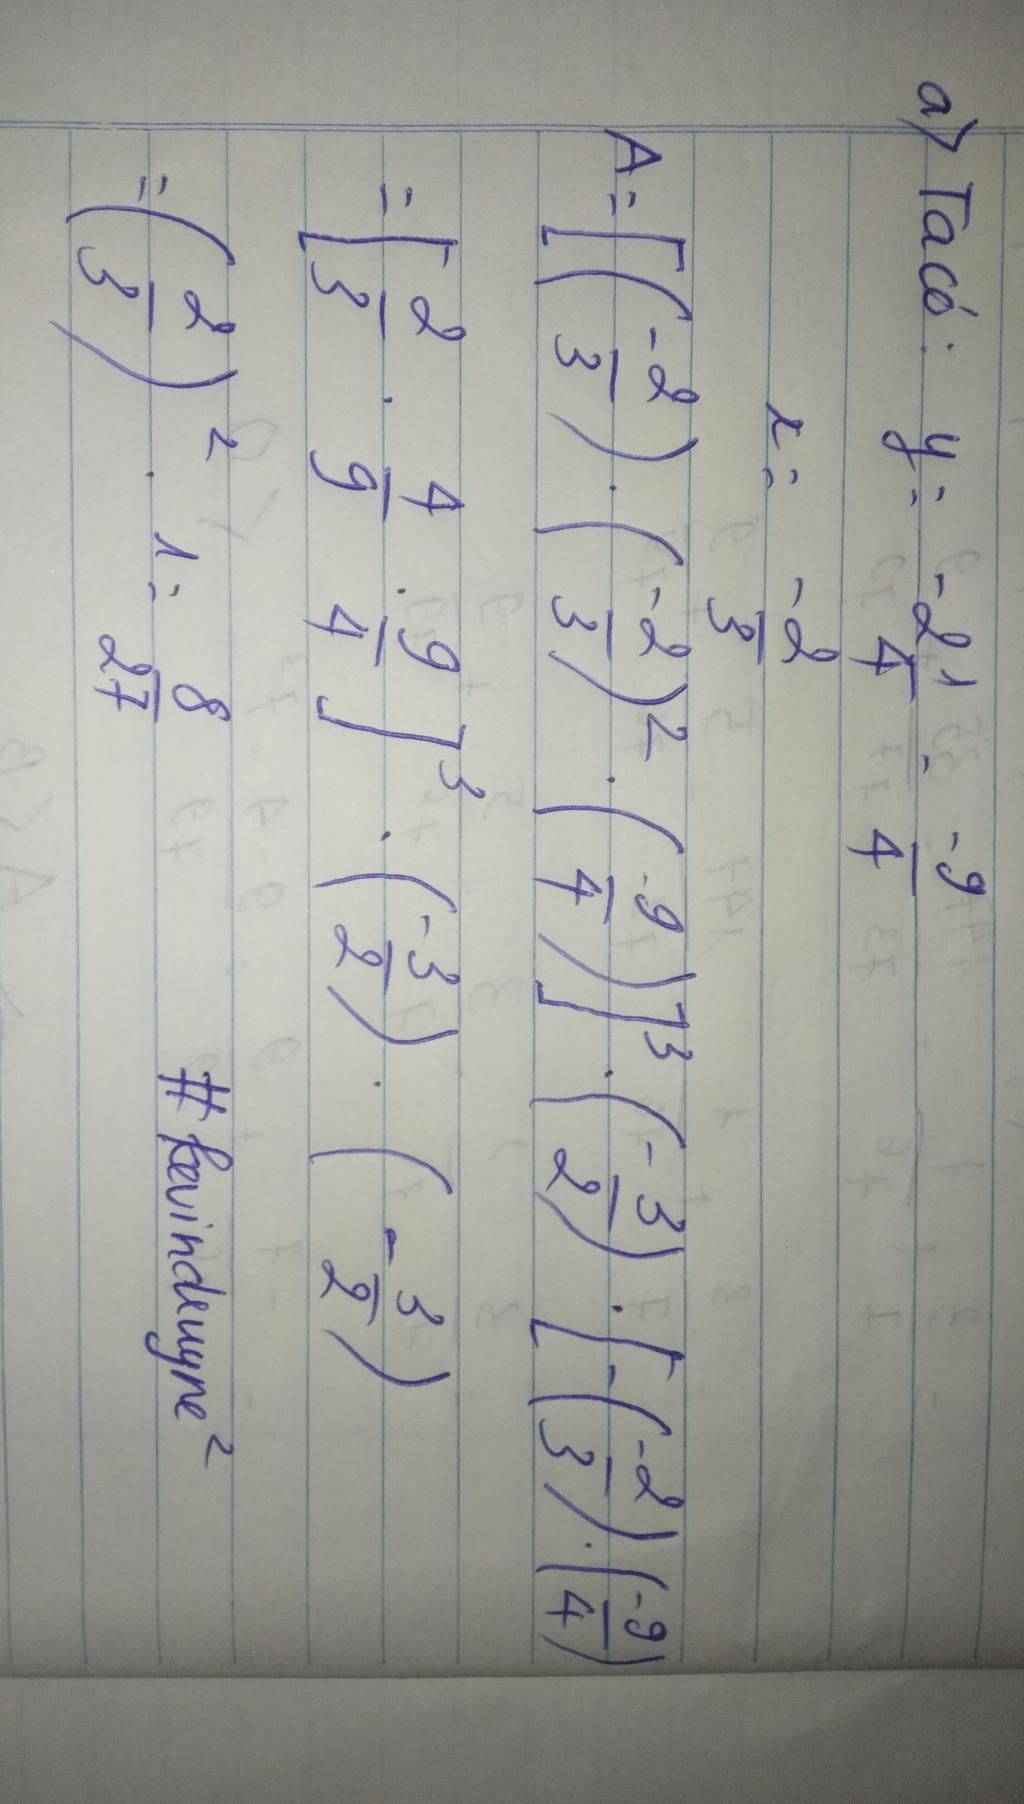 a) Ta có: y = -2 1/4 = -9/4
x = -2/3
A = [(-2/3) . (-2/3)² . (-9/4)]³ . (-3/2) . [-(-2/3) . (-9/4)
= [2/3 . 4/9 . 9/4]³ . (-3/2) . (-3/2)
= (2/3)² . 1 = 8/27